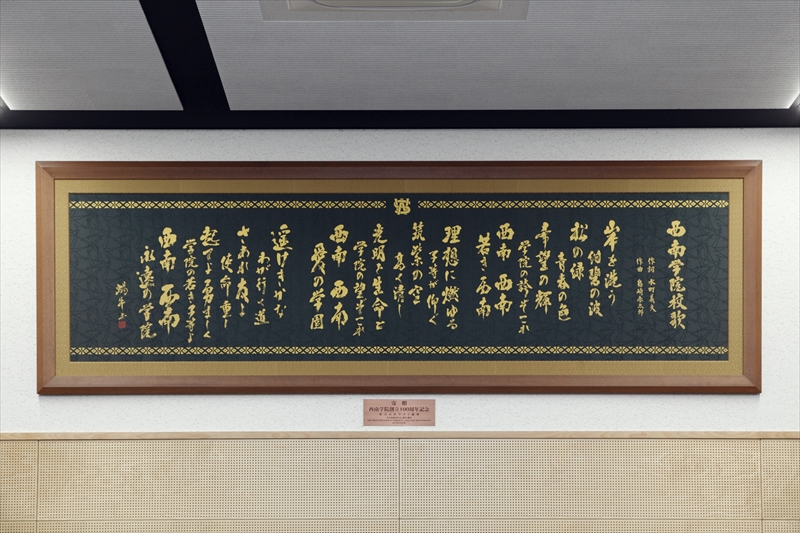 西南学院校歌
作詞 水町義夫
作曲 島崎赤太郎
岸を洗う
伯碧の波
松の緑
青春の色
希望の輝
学院の誇ぞ一れ
西南 西南
若き西南
理想に燃ゆる
子等が仰ぐ
筑紫の空
高く清し
光明と生命と
学院の望ぞ一れ
西南 西南
愛の学園
遥けきかな
わが行く道
さあれ友よ
使命重し
起てよ勇ましく
学院の若き子等よ
西南 西南
永遠の学院
寄贈
西南学院創立100周年記念